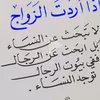 إذا أردت الزواج
لا تبحث عن النساء
بل ابحث عن الرجال
ففي بيوت الرجال
توجد النساء.